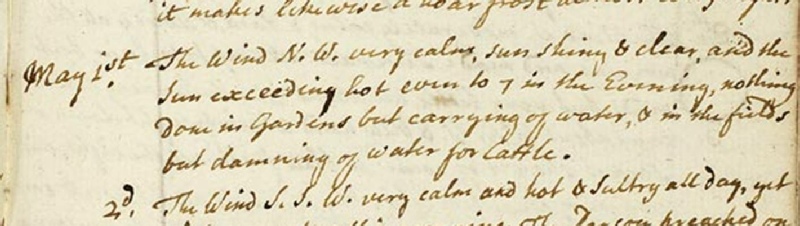 it makes likewise a hoar frost
May 1st. The Wind N. W. very calm, sun shiny & clear, and the
Sun exceeding hot even to 7 in the Evening, nothing
done in Gardens but carrying of water, & in the fields
but damning of water for Cattle.
2d. The Wind S. S. W. very calm and hot & Sultry all day, yet
The Parson preached on